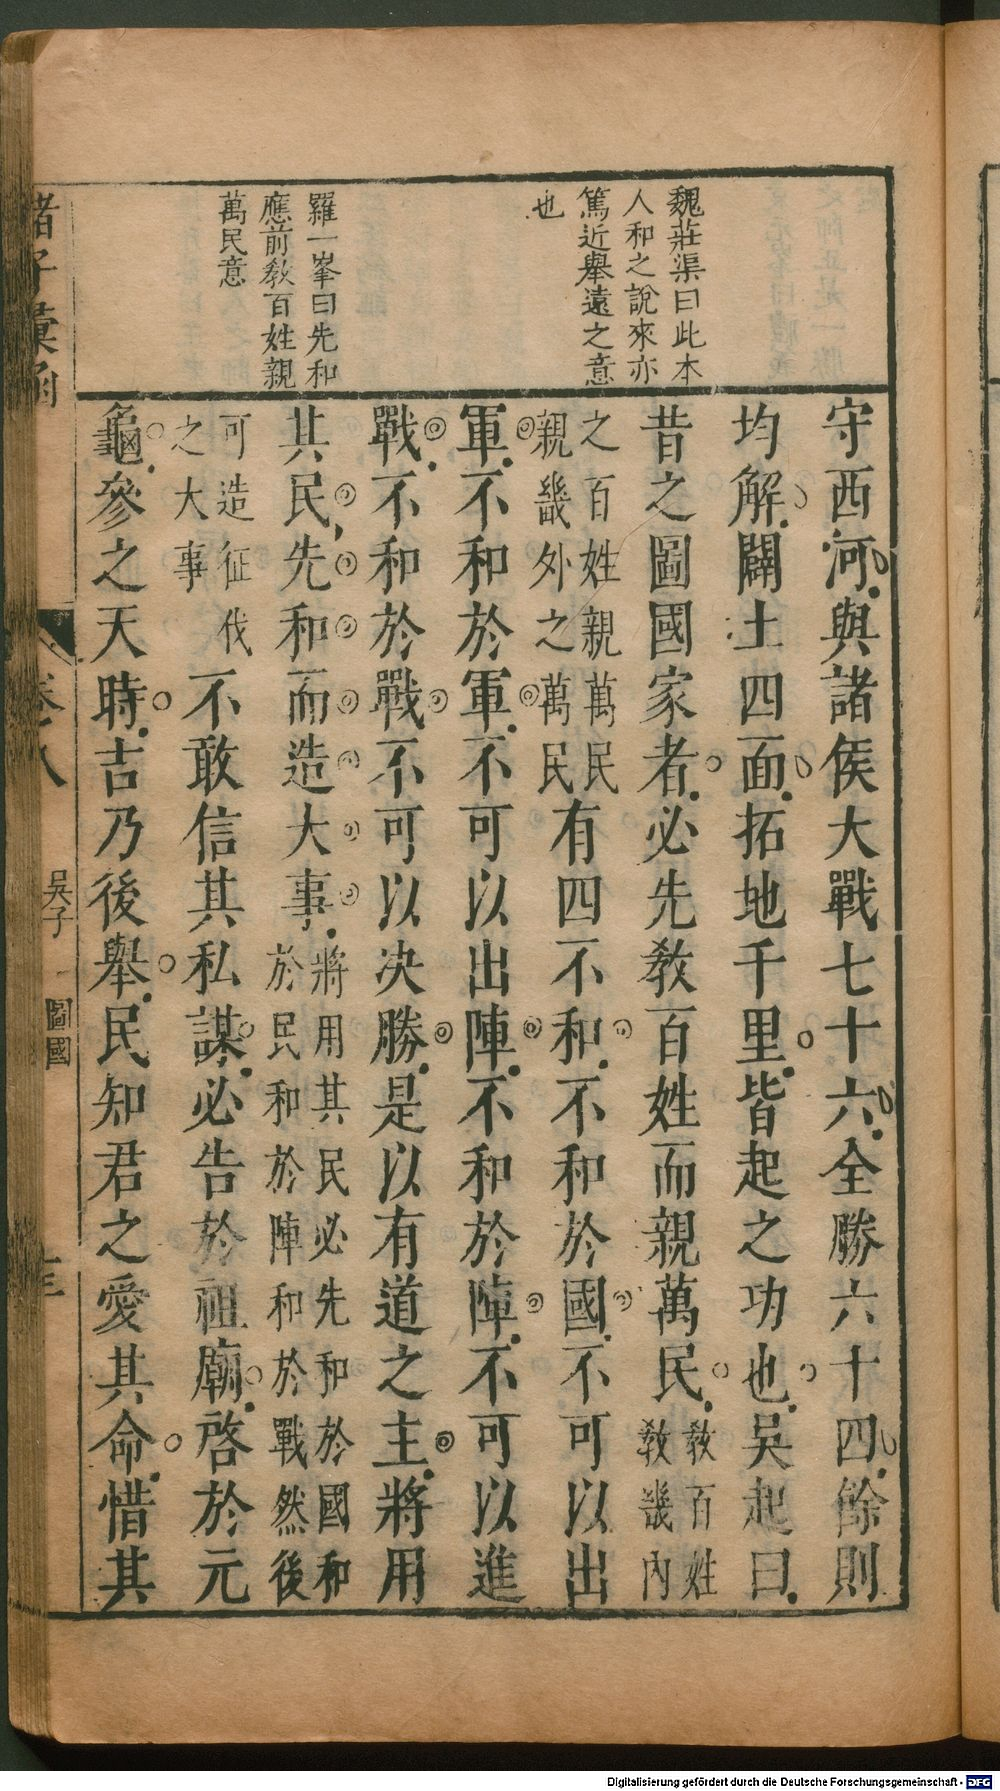 魏莊渠曰此本
人和之說來亦
篤近舉遠之意
也
羅一峯曰先和
應前敎百姓親
萬民意
守西河與諸侯大戰七十六全勝六十四餘則
均解闢土四面拓地千里皆起之功也吳起曰
昔之圖國家者必先敎百姓而親萬民敎百姓敎畿內
之百姓親萬民親畿外之萬民有四不和不和於國不可以出
軍不和於軍不可以出陣不和於陣不可以進
戰不和於戰不可以决勝是以有道之主將用
其民先和而造大事將用其民必先和於國和於民和於陣和於戰然後
可造征伐之大事不敢信其私謀必告於祖廟啓於元
龜參之天時吉乃後舉民知君之愛其命惜其
諸子彙函
卷之八
吳子
圖國
Digitalisierung gefördert durch die Deutsche Forschungsgemeinschaft - DFG